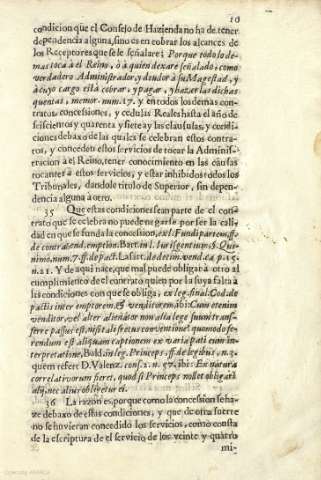 10
condicion que el Consejo de Hazienda no ha de tener
dependencia alguna, sino es en cobrar los alcances de
los Receptores que se le señalare; Porque todo lo de-
mas toca à el Reino, ò à quien dexare señalado; como
verdadero Administrador, y deudor à su Magestad, y
à cuyo cargo està cobrar, y pagar, y hazer las dichas
quentas, memor. num. 17. y en todos los demas con-
tratos, concessiones, y cedulas Reales hasta el año de
seiscientos y quarenta y siete ay las clausulas, y condi-
ciones debaxo de las quales se celebran estos contra-
tos, y conceden estos servicios de tocar la Adminis-
tracion à el Reino, tener conocimiento en las causas
tocantes à estos servicios, y estar inhibidos todos los
Tribunales, dandole titulo de Superior, sin depen-
dencia alguna à otro.
35 Que estas condiciones sean parte de el con-
trato que se celebra no puede negarse por ser la cali-
dad en que se funda la concession, ex l. Fundi partem, ff.
de contrahend. emption. Bart. in l. Iurisgentium, §. Qui-
nimo, num. 7. ff. de pact. Lasart. de decim. vend. ca. p. 15.
n. 21. Y de aqui nace, que mal puede obligar à otro al
cumplimiento de el contrato quien por la suya falta à
las condiciones con que se obliga, ex leg. final. Cod. de
pactis inter emptorem, & venditorem, ibi: Cum etenim
venditor, vel alter alienator non alia lege suum trans-
ferre passus est, nisi tali fretus conventione, quomodo fe-
rendum est aliquam captionem ex varia pati eum in-
terpretatione, Bald. in leg. Princeps, ff. de legibus, n. 3.
quem refert D. Valenz. cons. n. 97. ibi: Ex natura
correlativorum fieret, quod si Princeps nollet obligari
aliquis, nec alius obligetur ei.
36 La razon es, porque como la concession se ha-
ze debaxo de estas condiciones, y que de otra suerte
no se huvieran concedido los servicios, como consta
de la escriptura de el servicio de los veinte y quatro
mi-